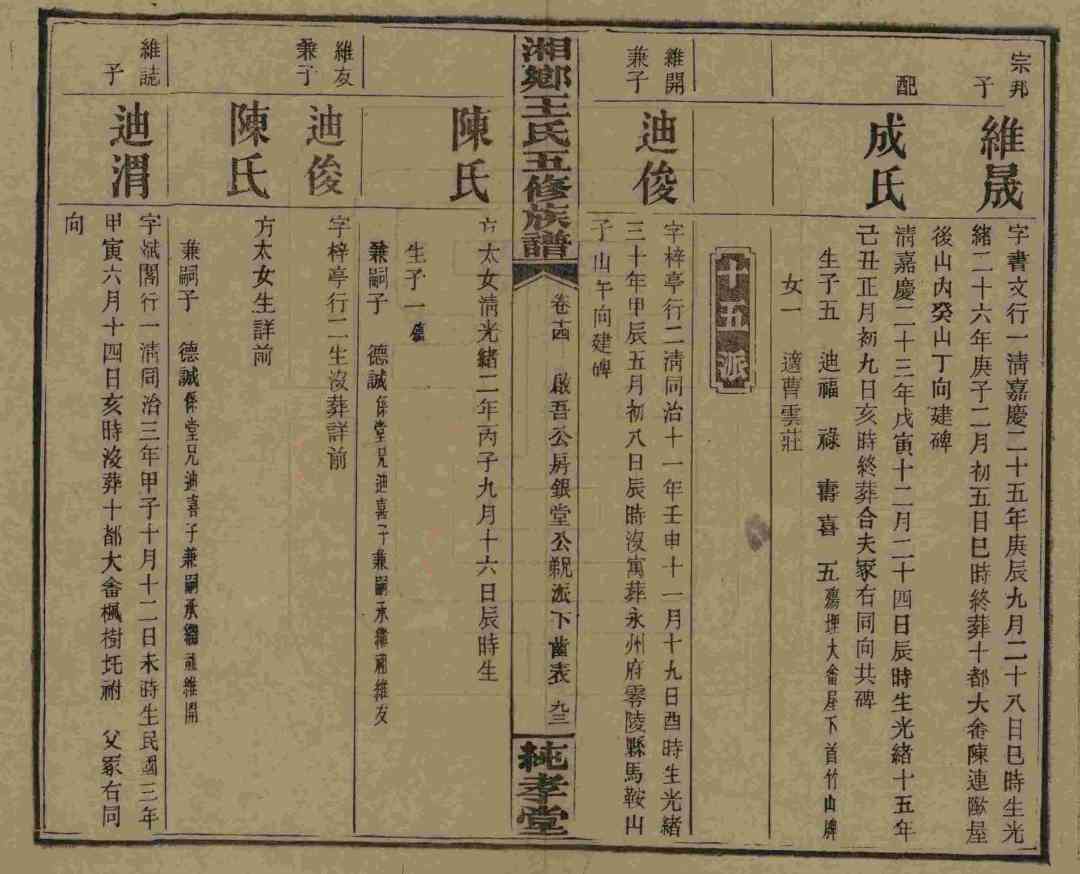 宗邦
子
維晟
字書文行一清嘉慶二十五年庚辰九月二十八日巳時生光
緒二十六年庚子二月初五日巳時終葬十都大畬陳連歐屋
後山內癸山丁向建碑
配
成氏
清嘉慶二十三年戊寅十二月二十四日辰時生光緒十五年
己丑正月初九日亥時終葬合夫冢右同向共碑
生子五 迪福 祿 壽 喜 五殤埋大畬屋下首竹山牌
女一 適曹雲莊
十五派
維開
兼子
迪俊
字梓亭行二清同治十一年壬申十一月十九日酉時生光緒
三十年甲辰五月初八日辰時沒寓葬永州府零陵縣馬鞍山
子山午向建碑
湘鄉王氏五修族譜
卷十四 啟吾公房銀堂公 派下齒表 九三
純孝堂
陳氏
方太女清光緒二年丙子九月十六日辰時生
生子一
兼嗣子 德誠係堂兄迪喜子兼嗣承繼祧維友
維友
兼子
迪俊
字梓亭行二生沒葬詳前
陳氏
方太女生詳前
兼嗣子 德誠係堂兄迪喜子兼嗣承繼祧維開
維誌
子
迪渭
字斌閣行一清同治三年甲子十月十二日未時生民國三年
甲寅六月十四日亥時沒葬十都大畬楓樹圫祔 父冢右同
向